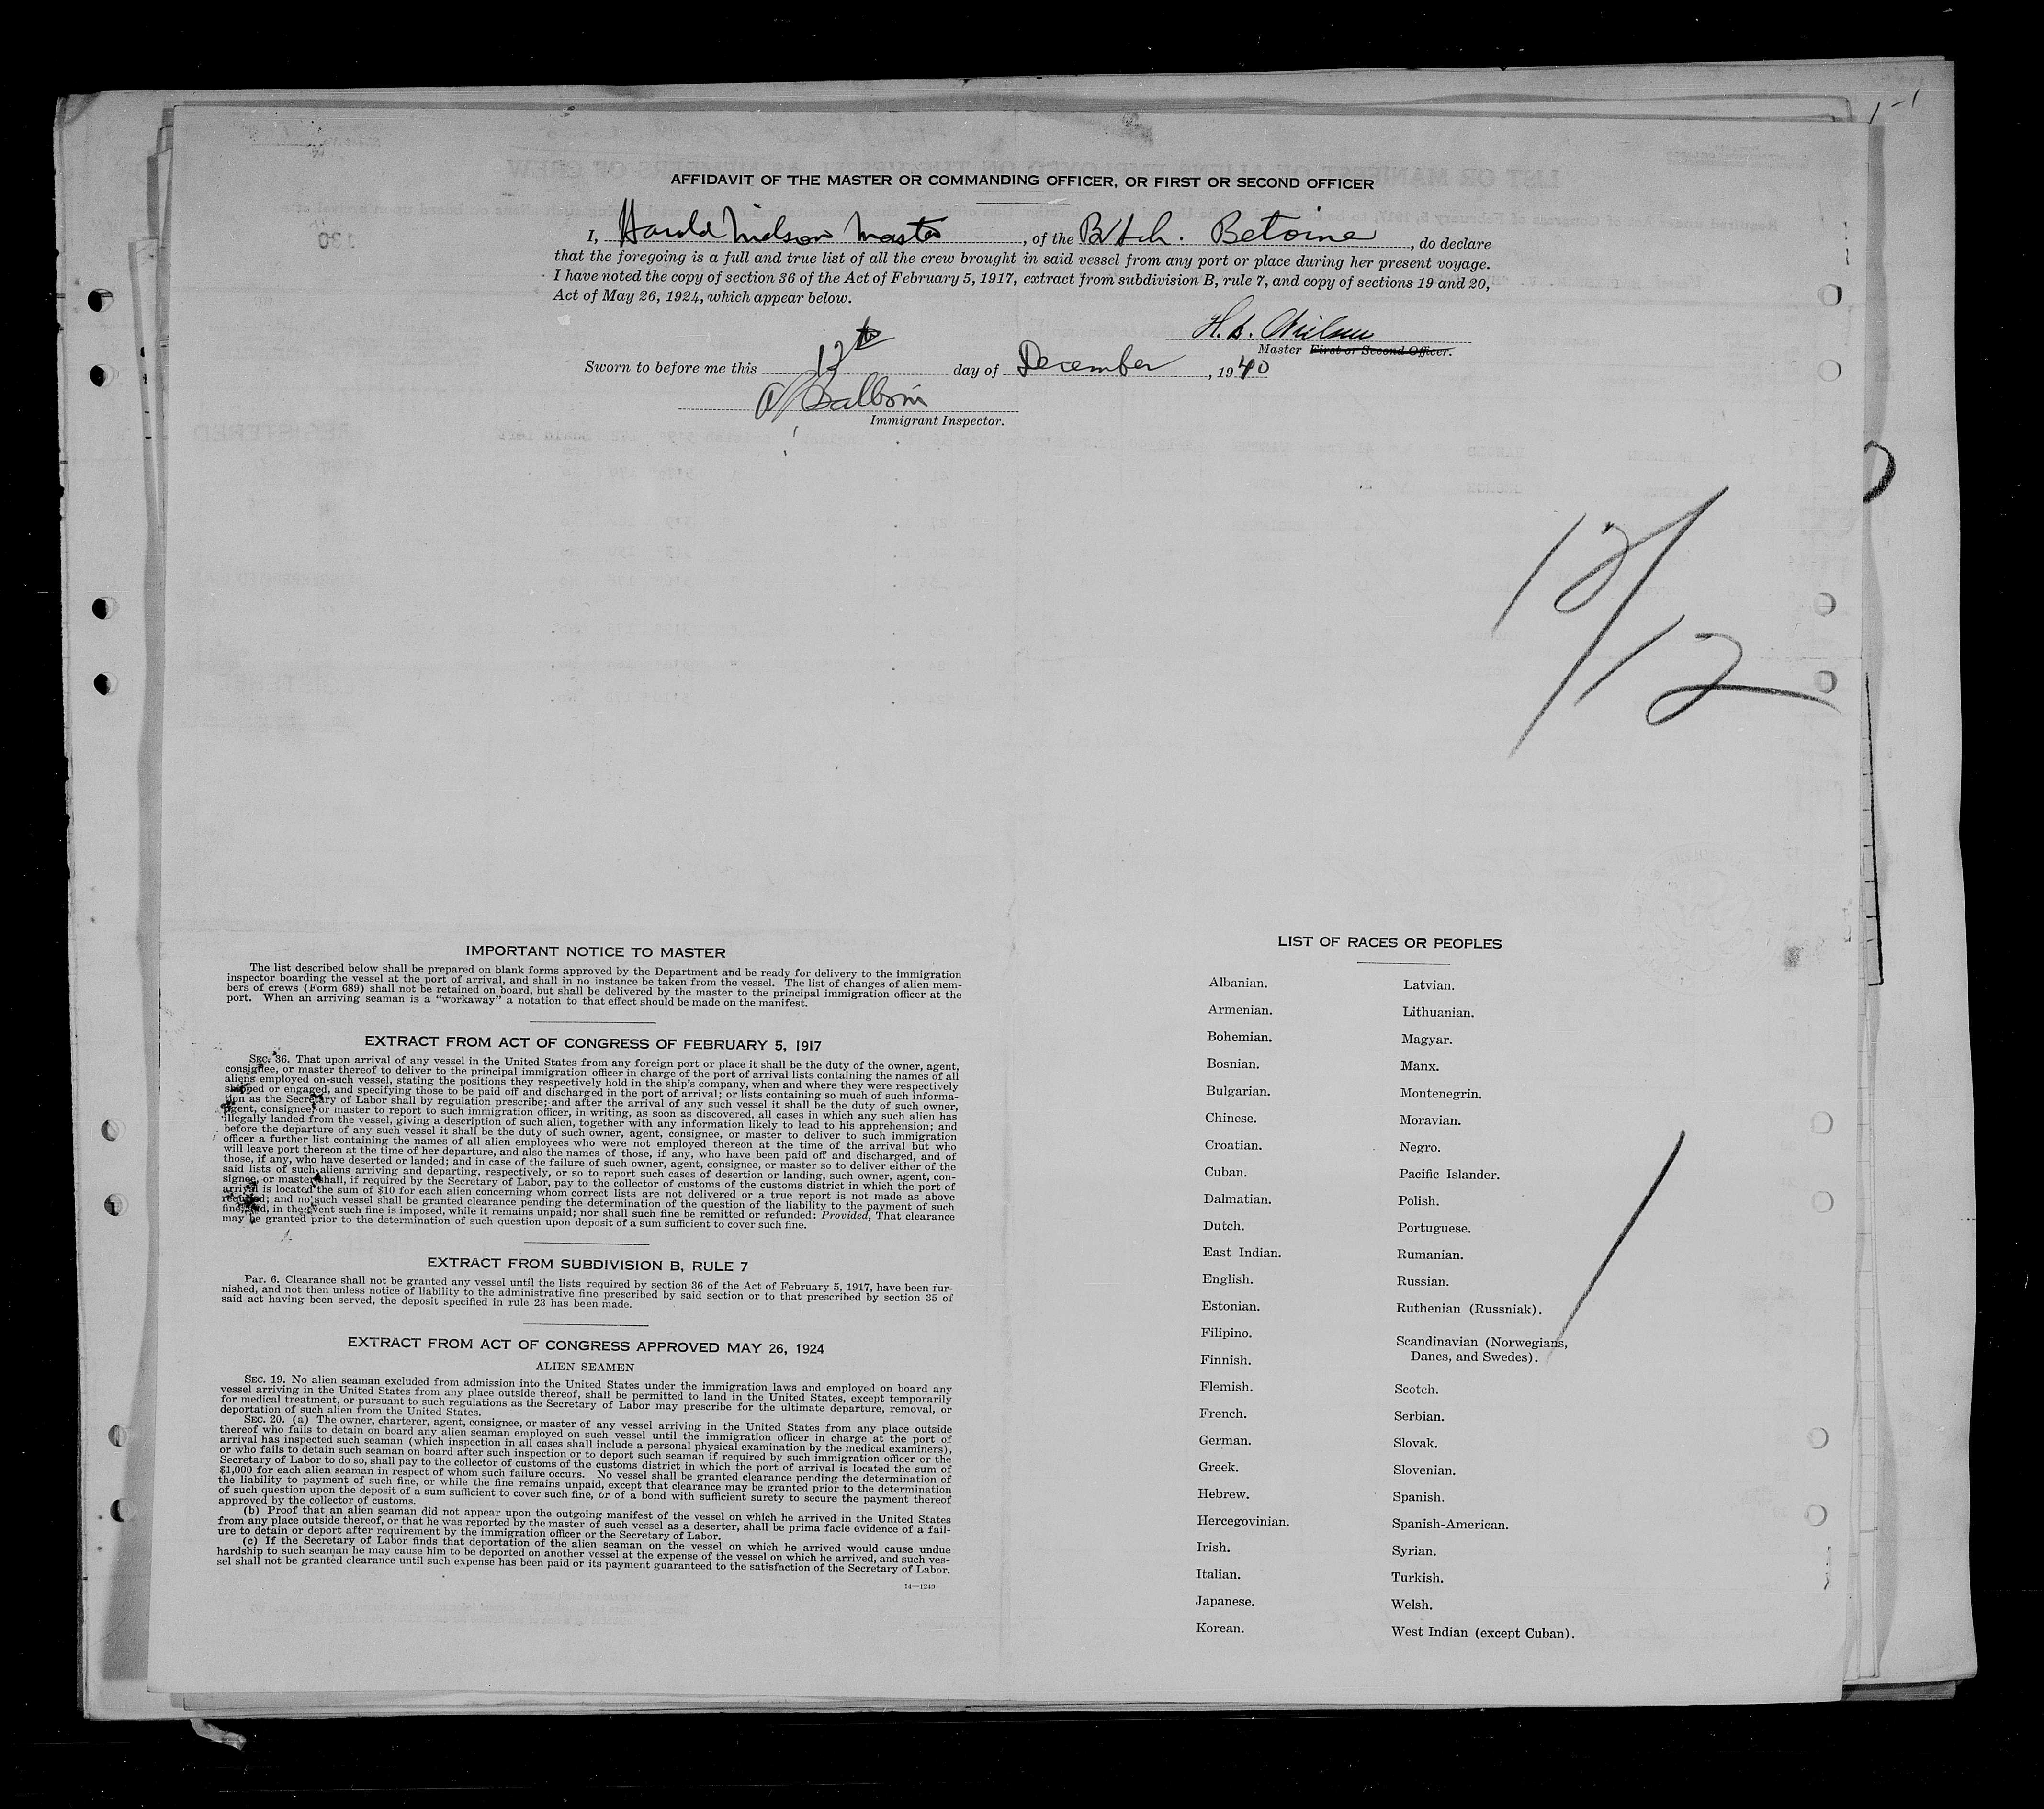 AFFIDAVIT OF THE MASTER OR COMMANDING OFFICER, OR FIRST OR SECOND OFFICER
I, Harold Nielson Master, of the Br Sch. Betoine, do declare
that the foregoing is a full and true list of all the crew brought in said vessel from any port or place during her present voyage.
I have noted the copy of section 36 of the Act of February 5, 1917, extract from subdivision B, rule 7, and copy of sections 19 and 20,
Act of May 26, 1924, which appear below.
Master First or Second Officer.
Sworn to before me this 12th day of December, 1940
Immigrant Inspector.
12/12
IMPORTANT NOTICE TO MASTER
The list described below shall be prepared on blank forms approved by the Department and be ready for delivery to the immigration
inspector boarding the vessel at the port of arrival, and shall in no instance be taken from the vessel. The list of changes of alien mem-
bers of crews (Form 689) shall not be retained on board, but shall be delivered by the master to the principal immigration officer at the
port. When an arriving seaman is a "workaway" a notation to that effect should be made on the manifest.
EXTRACT FROM ACT OF CONGRESS OF FEBRUARY 5, 1917
SEC. 36. That upon arrival of any vessel in the United States from any foreign port or place it shall be the duty of the owner, agent,
consignee, or master thereof to deliver to the principal immigration officer in charge of the port of arrival lists containing the names of all
aliens employed on such vessel, stating the positions they respectively hold in the ship's company, when and where they were respectively
shipped or engaged, and specifying those to be paid off and discharged in the port of arrival; or lists containing so much of such informa-
tion as the Secretary of Labor shall by regulation prescribe; and after the arrival of any such vessel it shall be the duty of such owner,
agent, consignee, or master to report to such immigration officer, in writing, as soon as discovered, all cases in which any such alien has
illegally landed from the vessel, giving a description of such alien, together with any information likely to lead to his apprehension; and
before the departure of any such vessel it shall be the duty of such owner, agent, consignee, or master to deliver to such immigration
officer a further list containing the names of all alien employees who were not employed thereon at the time of the arrival but who
will leave port thereon at the time of her departure, and also the names of those, if any, who have been paid off and discharged, and of
those, if any, who have deserted or landed; and in case of the failure of such owner, agent, consignee, or master so to deliver either of the
said lists of such aliens arriving and departing, respectively, or so to report such cases of desertion or landing, such owner, agent, con-
signee, or master shall, if required by the Secretary of Labor, pay to the collector of customs of the customs district in which the port of
arrival is located the sum of $10 for each alien concerning whom correct lists are not delivered or a true report is not made as above
required; and no such vessel shall be granted clearance pending the determination of the question of the liability to the payment of such
fine, and, in the event such fine is imposed, while it remains unpaid; nor shall such fine be remitted or refunded: Provided, That clearance
may be granted prior to the determination of such question upon deposit of a sum sufficient to cover such fine.
EXTRACT FROM SUBDIVISION B, RULE 7
Par. 6. Clearance shall not be granted any vessel until the lists required by section 36 of the Act of February 5, 1917, have been fur-
nished, and not then unless notice of liability to the administrative fine prescribed by said section or to that prescribed by section 35 of
said act having been served, the deposit specified in rule 23 has been made.
EXTRACT FROM ACT OF CONGRESS APPROVED MAY 26, 1924
ALIEN SEAMEN
SEC. 19. No alien seaman excluded from admission into the United States under the immigration laws and employed on board any
vessel arriving in the United States from any place outside thereof, shall be permitted to land in the United States, except temporarily
for medical treatment, or pursuant to such regulations as the Secretary of Labor may prescribe for the ultimate departure, removal, or
deportation of such alien from the United States.
SEC. 20. (a) The owner, charterer, agent, consignee, or master of any vessel arriving in the United States from any place outside
thereof who fails to detain on board any alien seaman employed on such vessel until the immigration officer in charge at the port of
arrival has inspected such seaman (which inspection in all cases shall include a personal physical examination by the medical examiners),
or who fails to detain such seaman on board after such inspection or to deport such seaman if required by such immigration officer or the
Secretary of Labor to do so, shall pay to the collector of customs of the customs district in which the port of arrival is located the sum of
$1,000 for each alien seaman in respect of whom such failure occurs. No vessel shall be granted clearance pending the determination of
the liability to payment of such fine, or while the fine remains unpaid, except that clearance may be granted prior to the determination
of such question upon the deposit of a sum sufficient to cover such fine, or of a bond with sufficient surety to secure the payment thereof
approved by the collector of customs.
(b) Proof that an alien seaman did not appear upon the outgoing manifest of the vessel on which he arrived in the United States
from any place outside thereof, or that he was reported by the master of such vessel as a deserter, shall be prima facie evidence of a fail-
ure to detain or deport after requirement by the immigration officer or the Secretary of Labor.
(c) If the Secretary of Labor finds that deportation of the alien seaman on the vessel on which he arrived would cause undue
hardship to such seaman he may cause him to be deported on another vessel at the expense of the vessel on which he arrived, and such ves-
sel shall not be granted clearance until such expense has been paid or its payment guaranteed to the satisfaction of the Secretary of Labor.
14—1240
LIST OF RACES OR PEOPLES
Albanian.
Armenian.
Bohemian.
Bosnian.
Bulgarian.
Chinese.
Croatian.
Cuban.
Dalmatian.
Dutch.
East Indian.
English.
Estonian.
Filipino.
Finnish.
Flemish.
French.
German.
Greek.
Hebrew.
Hercegovinian.
Irish.
Italian.
Japanese.
Korean.
Latvian.
Lithuanian.
Magyar.
Manx.
Montenegrin.
Moravian.
Negro.
Pacific Islander.
Polish.
Portuguese.
Rumanian.
Russian.
Ruthenian (Russniak).
Scandinavian (Norwegians,
Danes, and Swedes).
Scotch.
Serbian.
Slovak.
Slovenian.
Spanish.
Spanish-American.
Syrian.
Turkish.
Welsh.
West Indian (except Cuban).